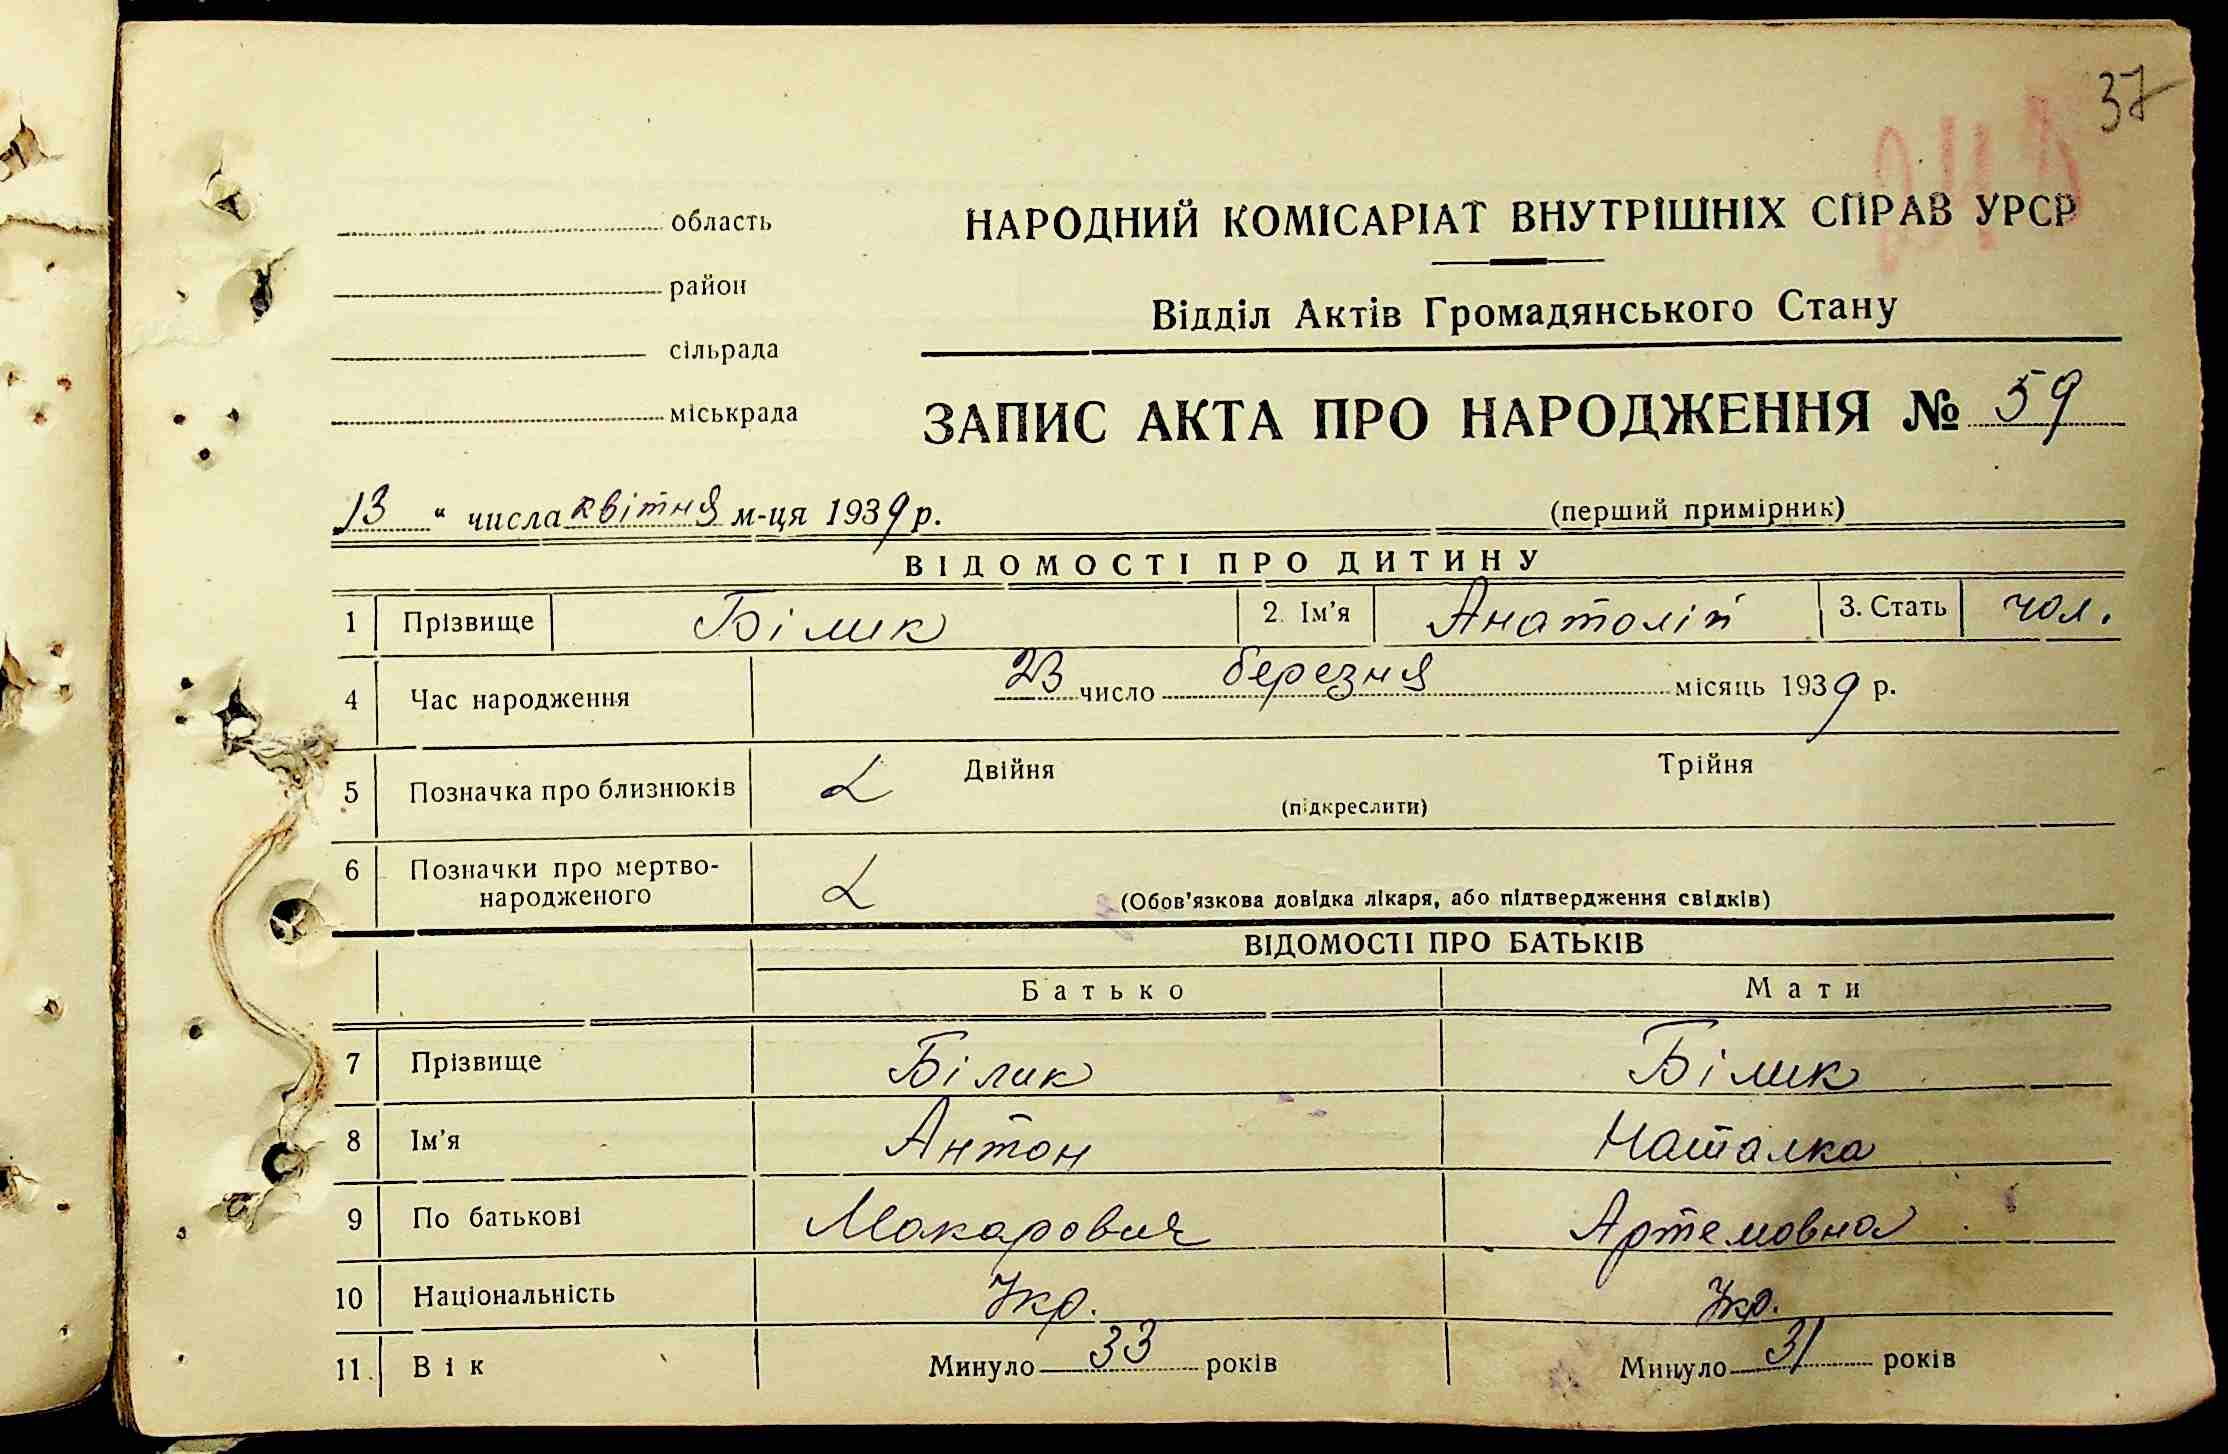 37
область
район
сільрада
міськрада
НАРОДНИЙ КОМІСАРІАТ ВНУТРІШНІХ СПРАВ УРСР
Відділ Актів Громадянського Стану
ЗАПИС АКТА ПРО НАРОДЖЕННЯ № 59
13 " числа квітня м-ця 1939 р.
(перший примірник)
ВІДОМОСТІ ПРО ДИТИНУ
1 Прізвище Білик 2. Ім'я Анатолій 3. Стать чол.
4 Час народження 23 число березня місяць 1939 р.
5 Позначка про близнюків Двійня Трійня
(підкреслити)
6 Позначки про мертво-
народженого (Обов'язкова довідка лікаря, або підтвердження свідків)
ВІДОМОСТІ ПРО БАТЬКІВ
Батько Мати
7 Прізвище Білик Білик
8 Ім'я Антон Наталка
9 По батькові Макарович Артемовна
10 Національність Укр. Укр.
11. Вік Минуло 33 років Минуло 31 років